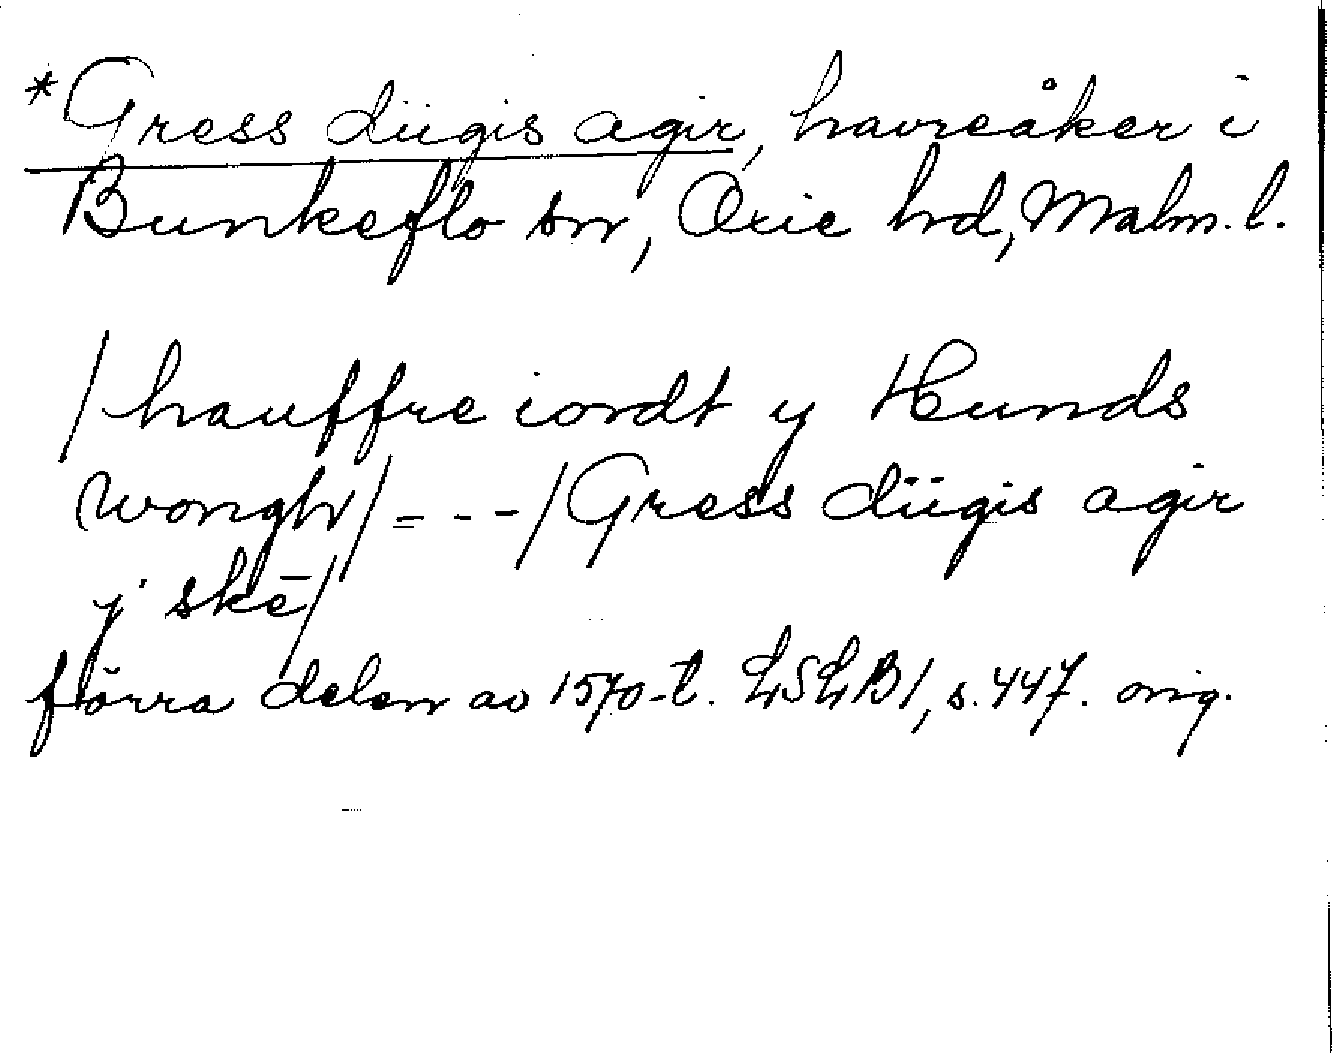 *Gress dügis agir, havreåker i
Bunkeflo sn, Oxie hd, Malm. l.
/hauffre iordt y Hunds
wongh/ = - - -/Gress dügis agir
y skē/
förra delen av 1570-t. LSLB1, s. 447. orig.